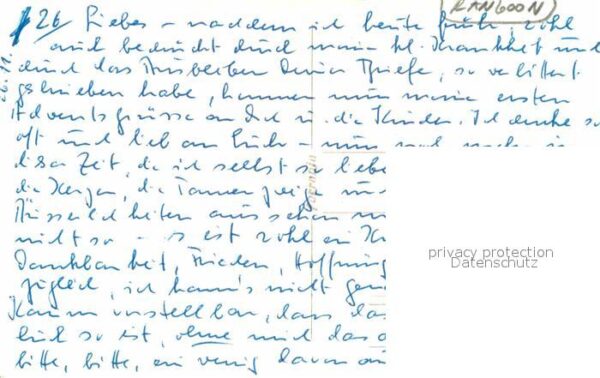 RANGOON
26 Liebes – nachdem ich heute früh, wohl
auch bedrückt durch meine kl. Krankheit und
durch das Ausbleiben Deiner Briefe, so verbittert
geschrieben habe, kommen nun meine ersten
Adventsgrüsse an Dich u. die Kinder. Ich denke so
oft und lieb an Euch – nun und
diese Zeit, da ich selbst so liebe
die Kerzen, die Tannenzweige
aussehen
nicht so – es ist wohl ein
Dankbarkeit, Frieden, Hoffnung
ich kann's nicht
Kaum vorstellbar, dass das
so ist, ohne mich das
bitte, bitte, ein wenig davon
privacy protection
Datenschutz